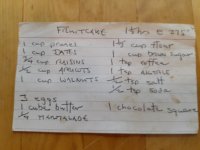 FRUITCAKE 1½ hrs @ 275°
1 cup prunes
1 cup DATES
¾ cup RAISINS
½ cup APRICOTS
1 cup WALNUTS
3 eggs
1 cube butter
¼ MARMALADE
1½ cup flour
1 cup brown sugar
1 tsp coffee
1 tsp ALLSPICE
½ tsp salt
½ tsp soda
1 chocolate square